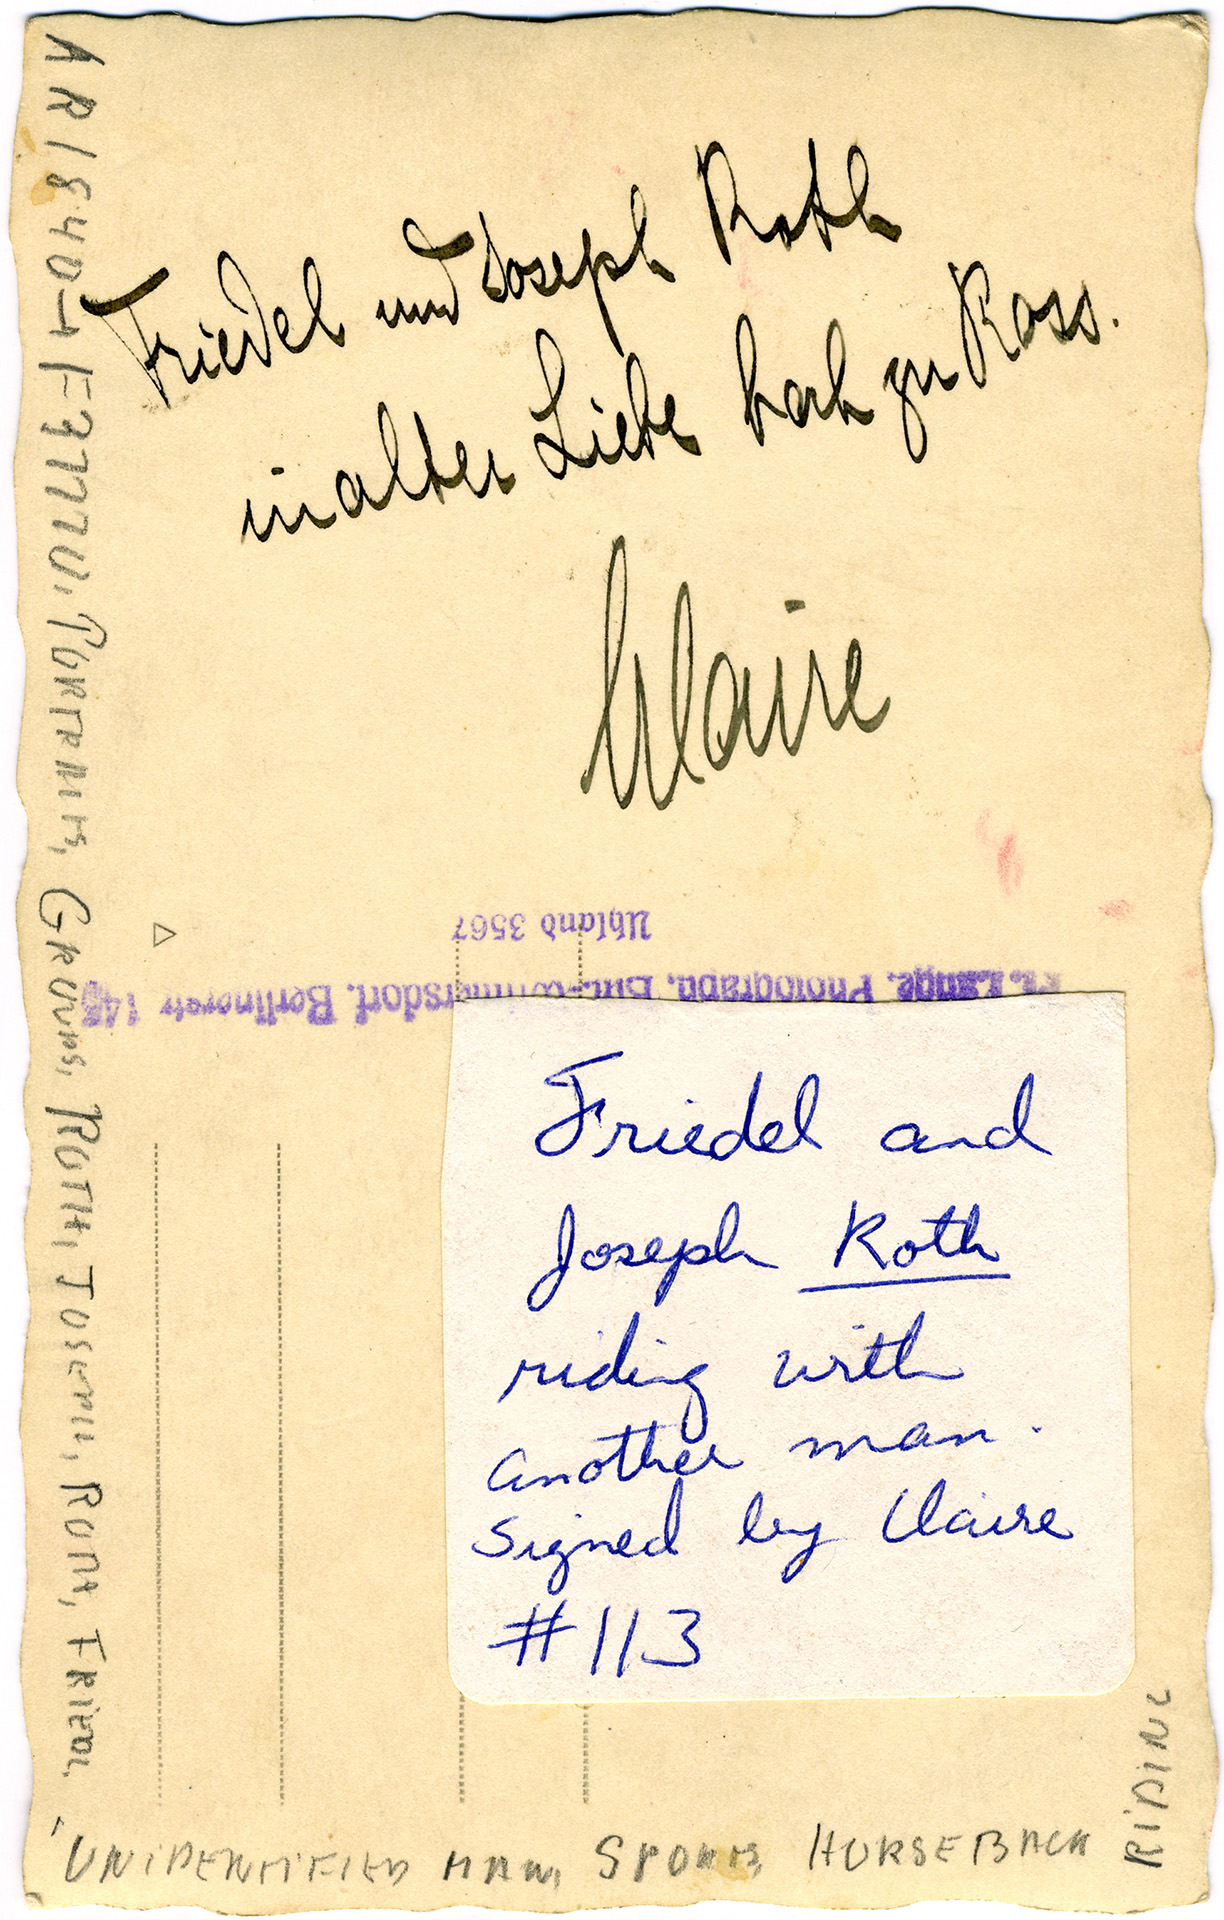 Friedel und Joseph Roth
in alter Liebe hoch zu Ross.
Claire
Uhland 3567
Lange. Photograph, Bln.-Wilmersdorf. Berlinerstr 145
Friedel and
Joseph Roth
riding with
another man.
signed by Claire
#113
PORTRAITS, GROUPS, ROTH, JOSEPH, ROTH, FRIEDL,
UNIDENTIFIED MAN, SPORTS, HORSEBACK
RIDING